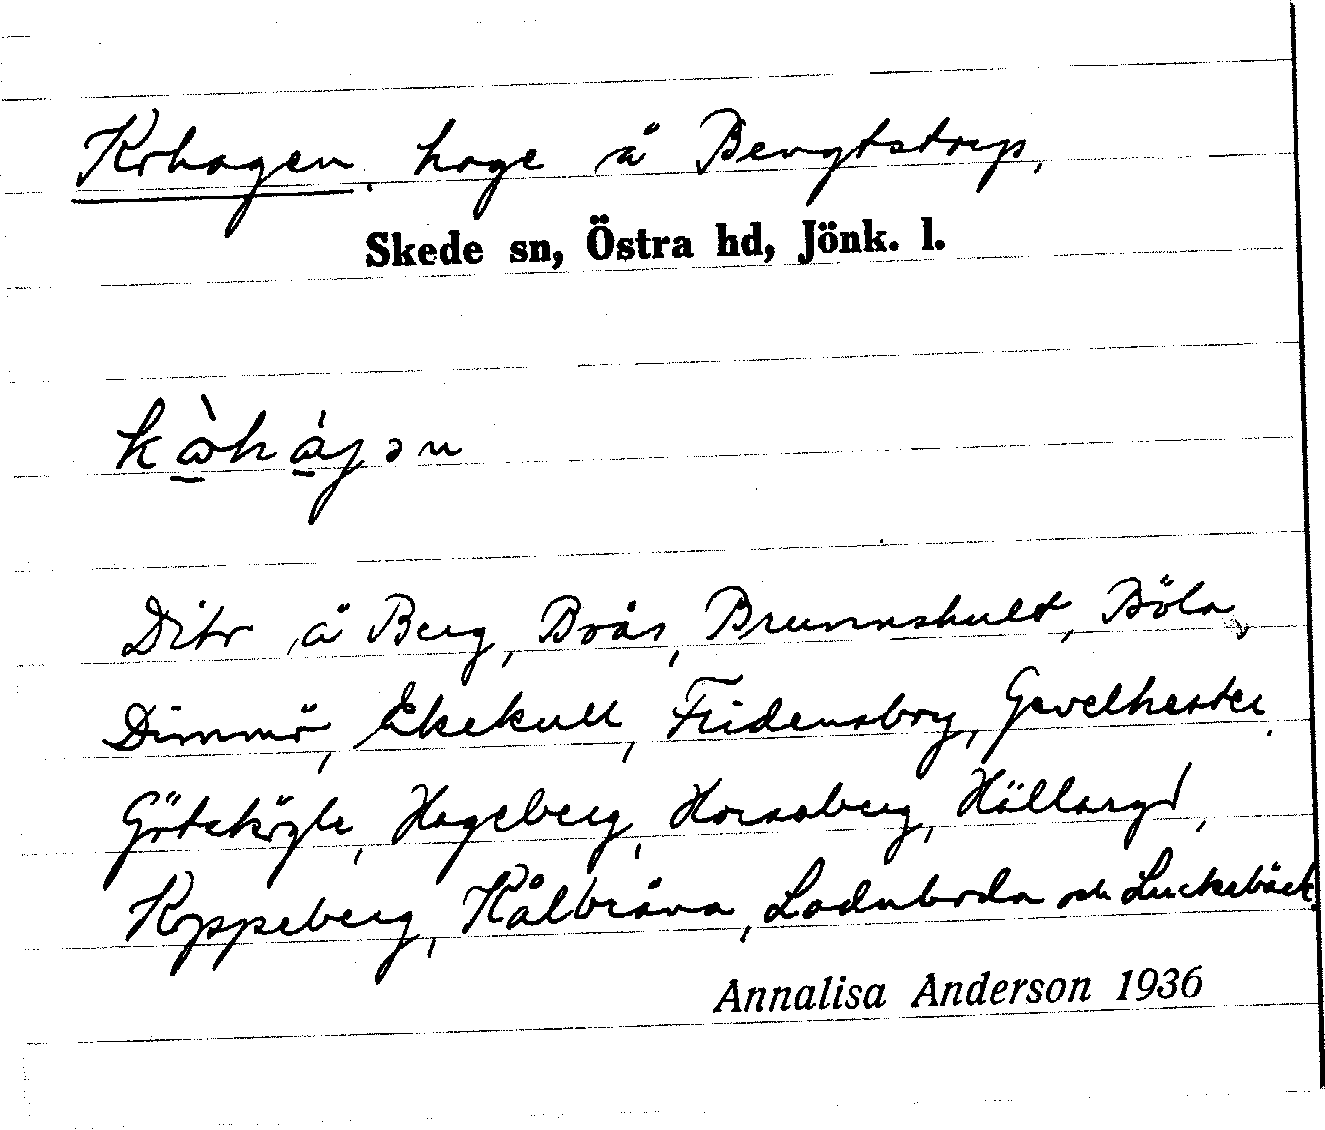 Kohagen, hage å Bengtstorp,
Skede sn, Östra hd, Jönk. l.
kòhàgən
Dito å Berg, Boås, Brunnshult, Böla,
Dimmö, Ekekull, Fridensborg, Gavelhester,
Göteköple, Hageberg, Horsaberg, Hällargd,
Koppeberg, Kålbråna, Laduboda och Luckebäck.
Annalisa Anderson 1936